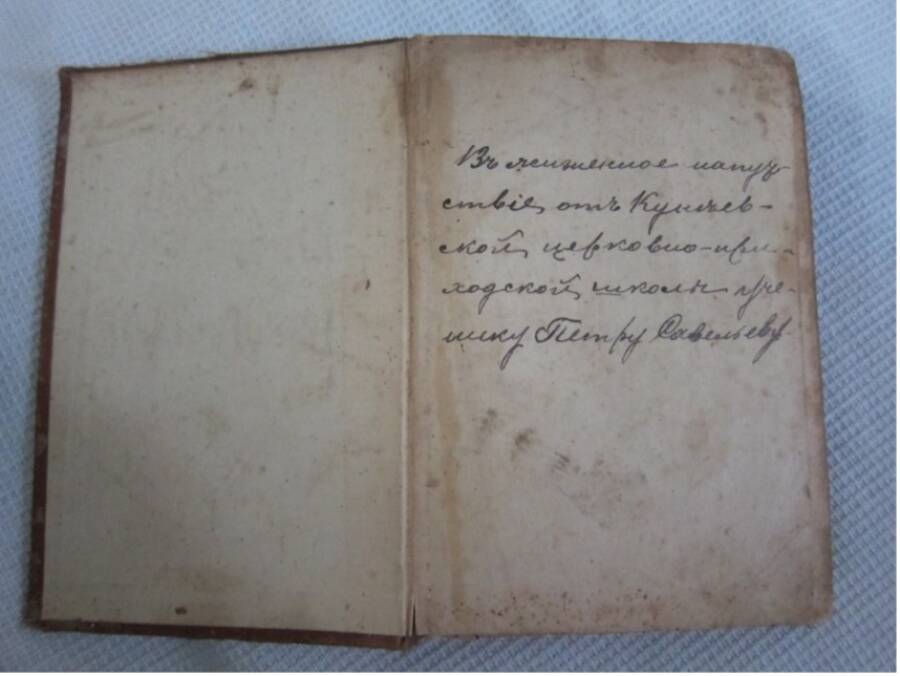 Въ жизненное напут-
ствіе, отъ Кунчев-
ской, церковно-при-
ходской, школы уче-
нику Петру Савельеву